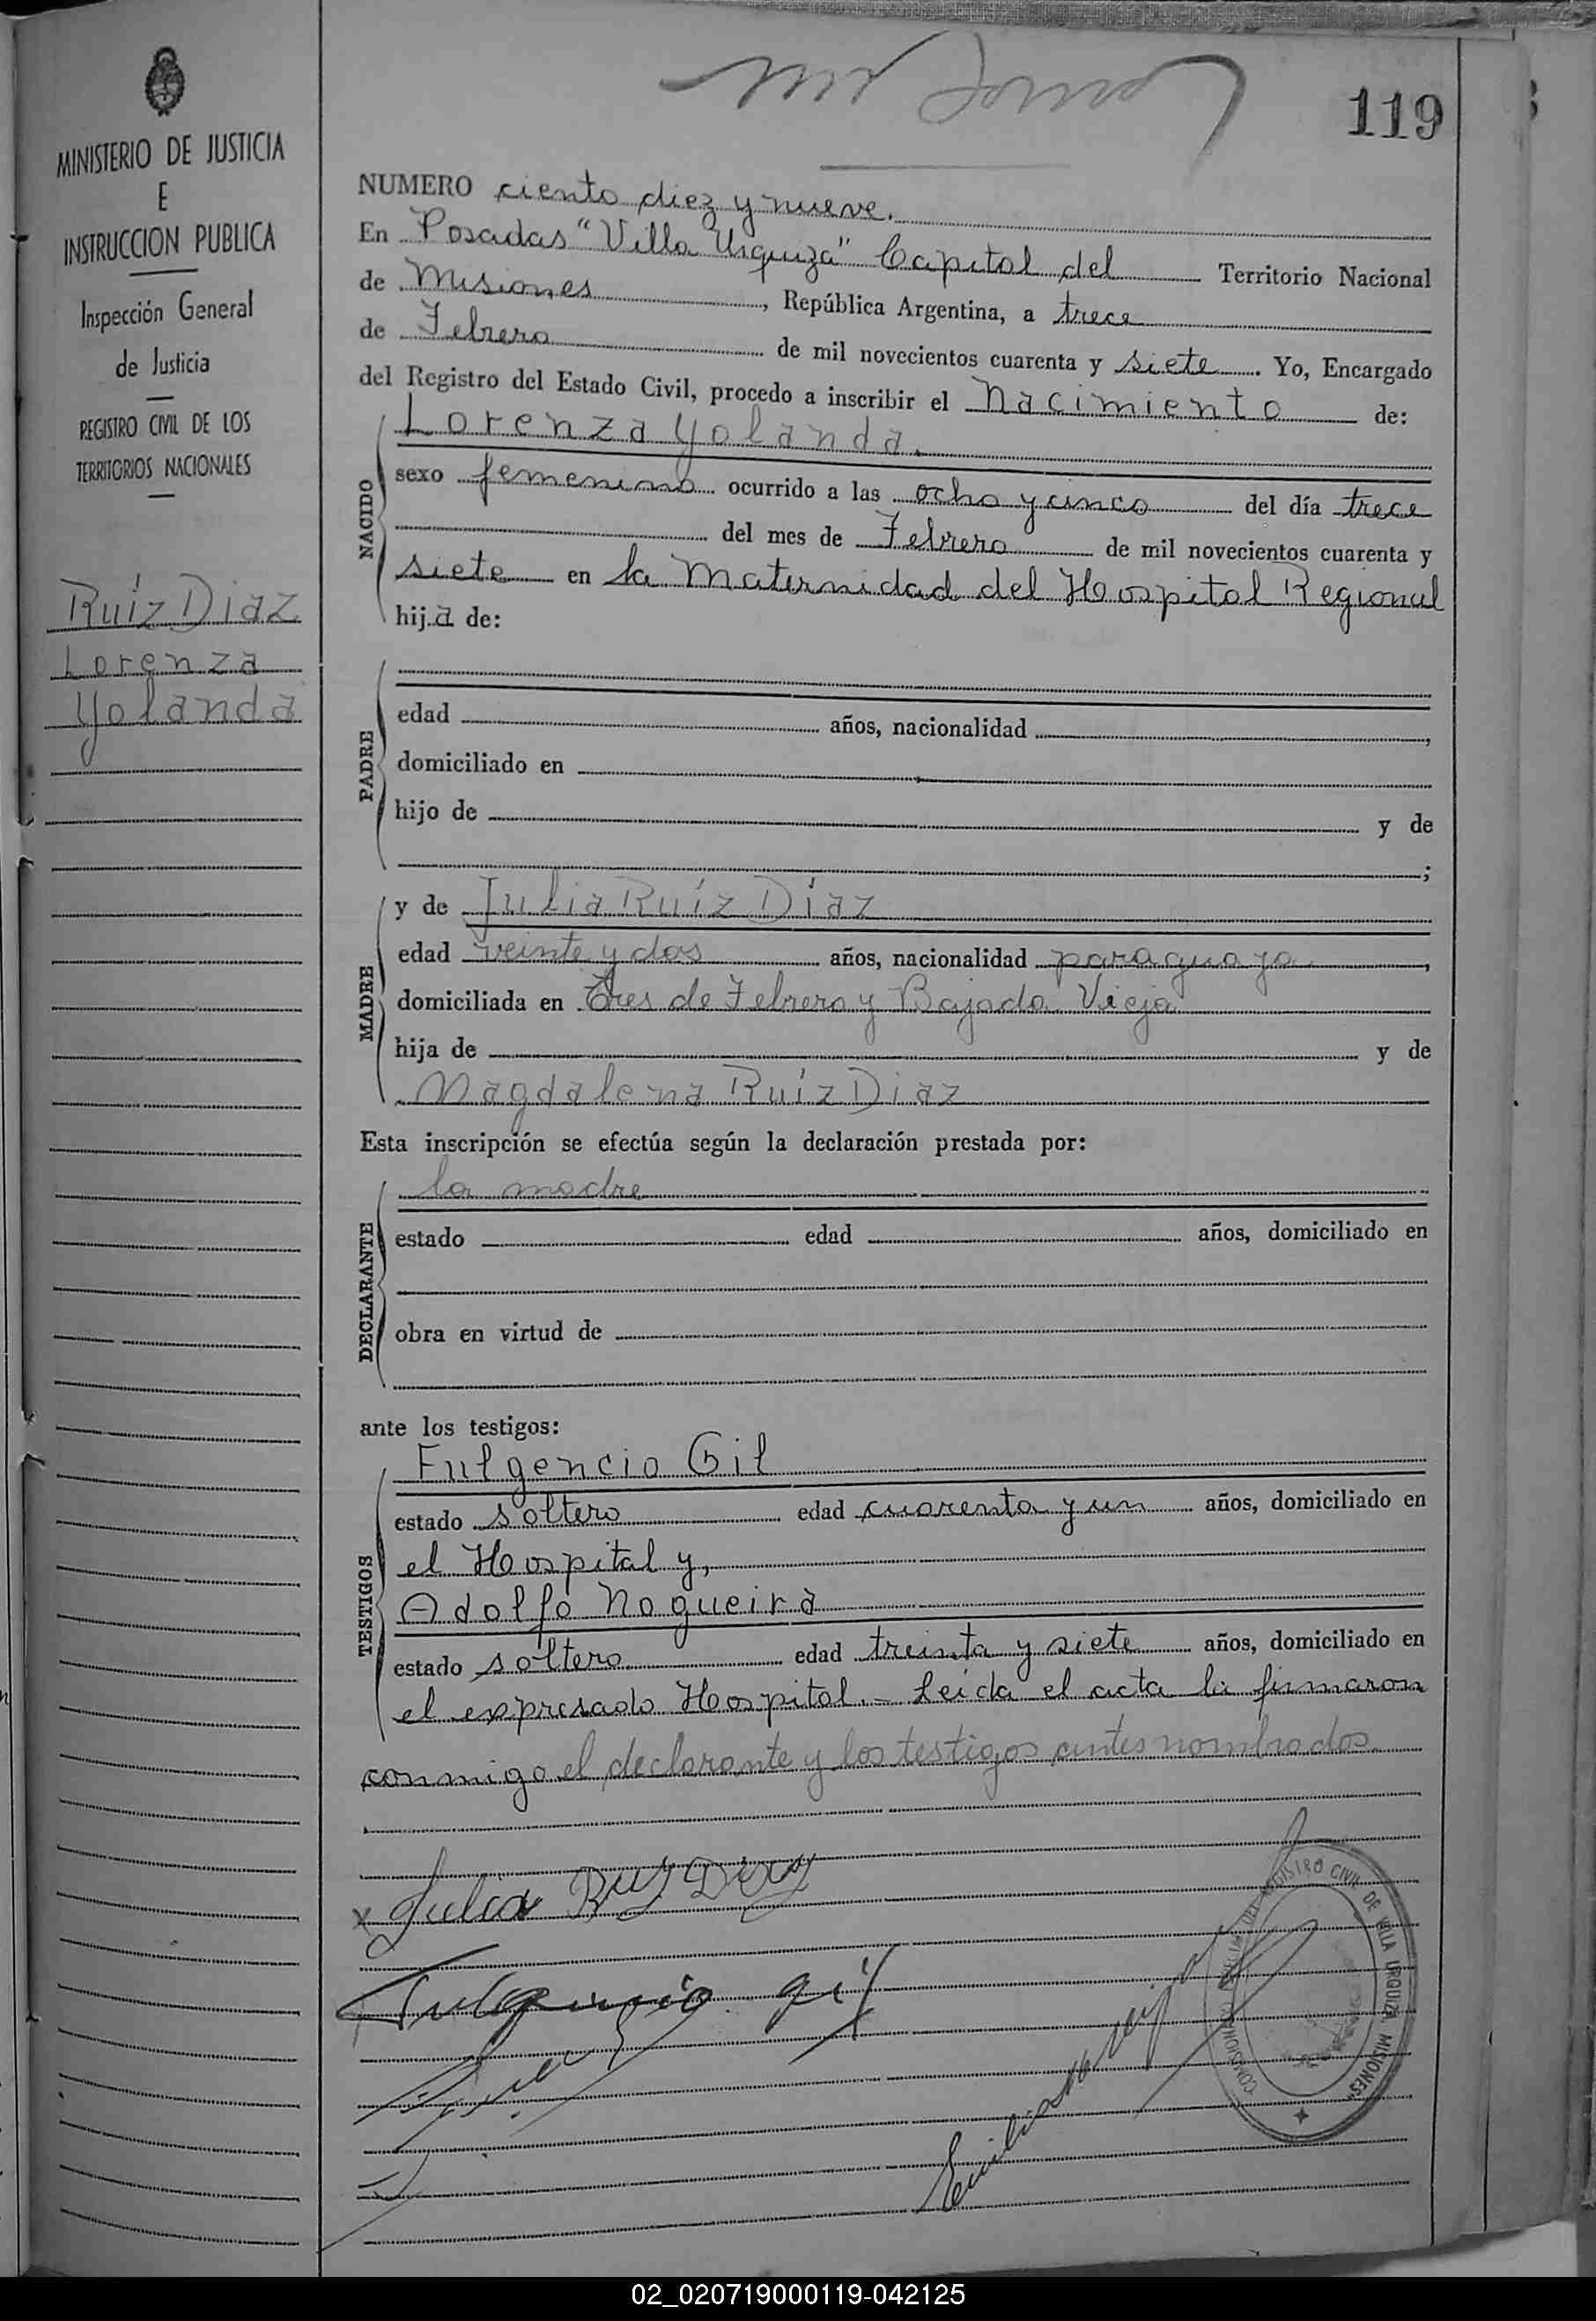 119
MINISTERIO DE JUSTICIA
E
INSTRUCCION PUBLICA
Inspección General
de Justicia
REGISTRO CIVIL DE LOS
TERRITORIOS NACIONALES
Ruíz Diaz
Lorenza
Yolanda
NUMERO ciento diez y nueve.
En Posadas "Villa Urquiza" Capital del Territorio Nacional
de Misiones, República Argentina, a trece
de Febrero de mil novecientos cuarenta y siete. Yo, Encargado
del Registro del Estado Civil, procedo a inscribir el Nacimiento de:
NACIDO
Lorenza Yolanda.
sexo femenino ocurrido a las ocho y cinco del día trece
del mes de Febrero de mil novecientos cuarenta y
siete en la Maternidad del Hospital Regional
hija de:
PADRE
edad años, nacionalidad ,
domiciliado en
hijo de y de
;
MADRE
y de Julia Ruíz Díaz
edad veinte y dos años, nacionalidad paraguaya,
domiciliada en Tres de Febrero y Bajada Vieja
hija de y de
Magdalena Ruíz Diaz
Esta inscripción se efectúa según la declaración prestada por:
DECLARANTE
la madre
estado edad años, domiciliado en
obra en virtud de
ante los testigos:
TESTIGOS
Fulgencio Gil
estado soltero edad cuarenta y un años, domiciliado en
el Hospital y,
Adolfo Nogueira
estado soltero edad treinta y siete años, domiciliado en
el expresado Hospital.- Leída el acta la firmaron
conmigo el declarante y los testigos antes nombrados
x Julia Ruy Diaz
Fulgencio gil
REGISTRO CIVIL DE VILLA URQUIZA MISIONES
02_020719000119-042125